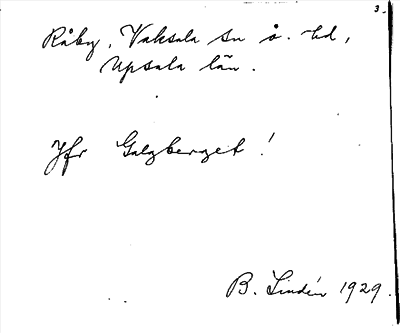 3.
Råby, Vaksala sn o. hd,
Upsala län.
Jfr Galgberget!
B. Lindén 1929.